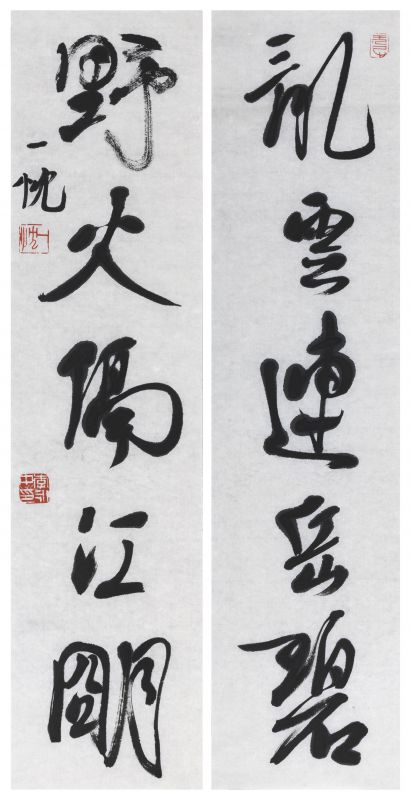 亂雲連岳碧
野火隔江朙
一忱